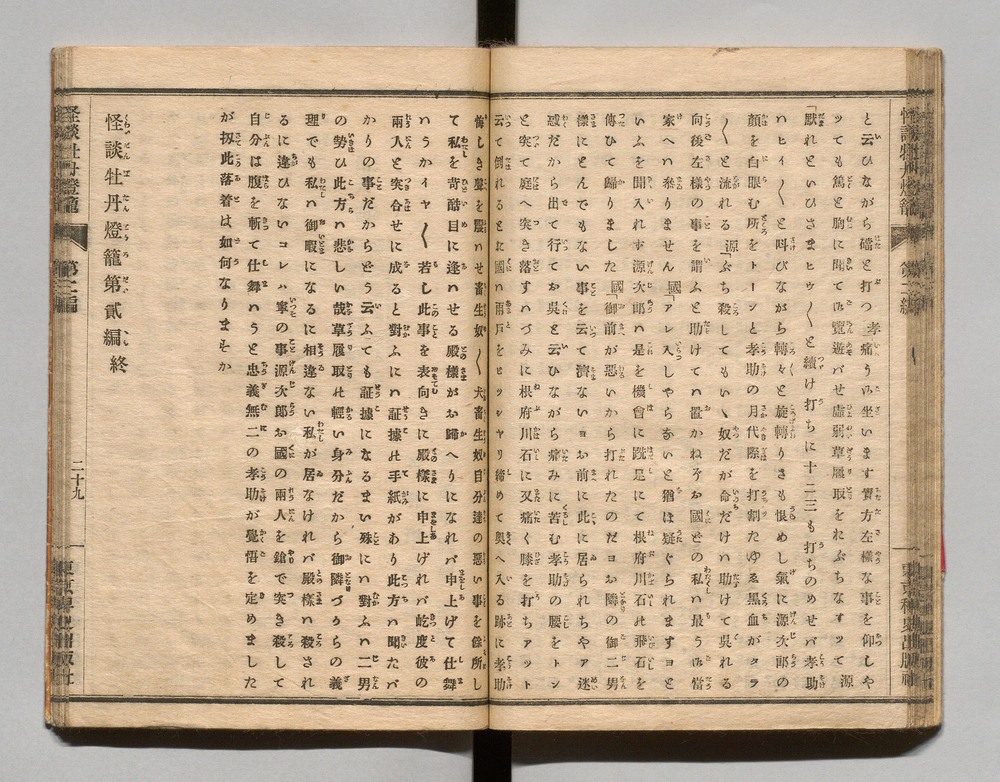 と云ひながら礑と打つ 孝「痛う厶坐います貴方左樣な事を仰しや
ッても篤と胸に聞て厶覽遊バせ虚弱草履取をれぶちなすッて 源
「默れといひさまヒゥ〳〵と續け打ちに十二三も打ちのめせバ孝助
ハヒイ〳〵と叫びながら轉々と旋轉りさも恨めし氣に源次郎の
顏を白眼む所をトーンと孝助の月代際を打割たゆゑ黒血がタラ
〳〵と流れる 源「ぶち殺してもいゝ奴だが命だけハ助けて呉れる
向後左樣の事を謂ふと助けてハ置かねゑぞお國どの私ハ最う厶當
家へハ參りません 國「アレ入しやらないと猶ほ疑ぐられますヨと
いふを聞入れず源次郎ハ是を機會に跣足にて根府川石此飛石を
傳ひて歸りました 國「御前が惡いから打れたのだヨお隣の御二男
樣にとんでもない事を云て濟ないヨお前に此に居られちやア迷
惑だから出て行てお呉と云ひながら痛みに苦む孝助の腰をトン
と突て庭へ突き落すハづみに根府川石に又痛く膝を打ちアット
云て倒れるとお國ハ雨戸をピッシャリ締めて奧へ入る跡に孝助
悔しき聲を震ハせ畜生奴〳〵犬畜生奴自分達の惡い事を餘所し
て私を苛酷目に逢ハせる殿樣がお歸へりになれバ申上げて仕舞
ハうかイヤ〳〵若し此事を表向きに殿樣に申上げれバ屹度彼の
兩人と突合せに成ると對ふにハ証據此手紙があり此方ハ聞たバ
かりの事だからどう云ふても証據になるまい殊にハ對ふハ二男
の勢ひ此方ハ悲しい哉草履取此輕い身分だから御隣づからの義
理でも私ハ御暇になるに相違ない私が居なければバ殿樣ハ殺され
るに違ひないコレハ寧の事源次郎お國の兩人を鎗で突き殺して
自分は腹を斬て仕舞ハうと忠義無二の孝助が覺悟を定めました
が扨此落着は如何なりますか
怪談牡丹燈籠第貳編終
怪談牡丹燈籠
第二編
二十九
東京稗史出版社